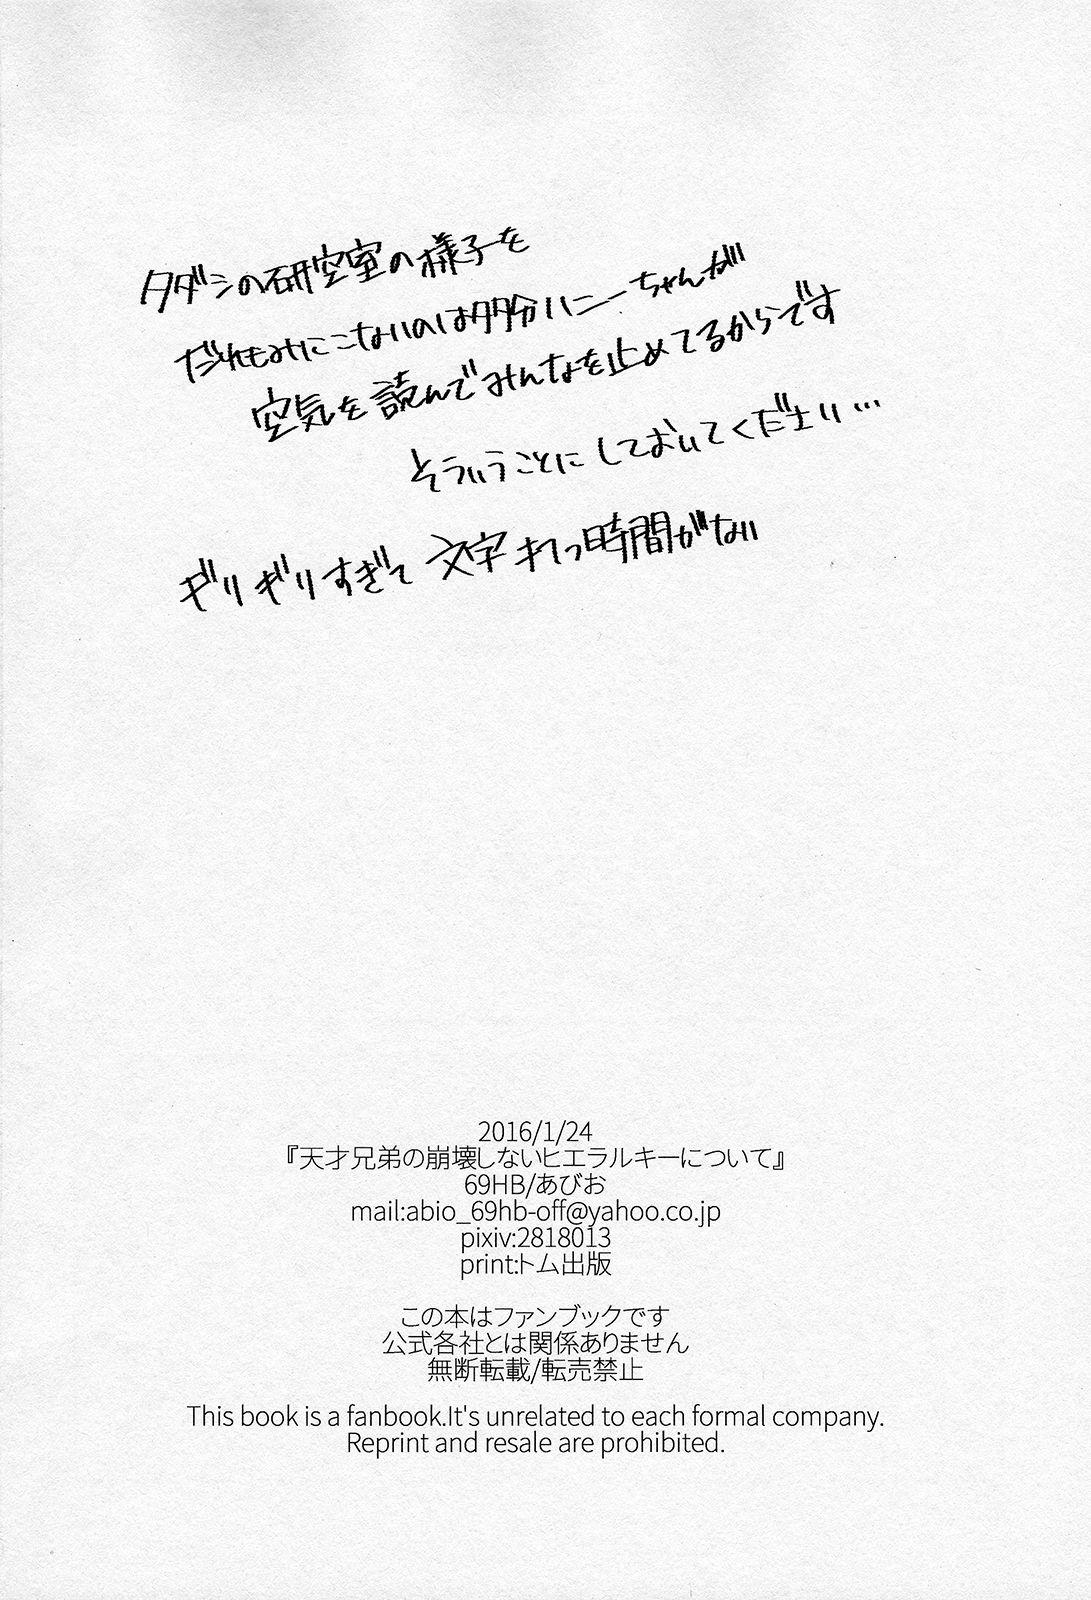 タダシの研究室の様子を
だれもみにこないのは多分ハニーちゃんが
空気を読んでみんなを止めてるからです
そういうことにしておいてください…
ギリギリすぎて文字打つ時間がない
2016/1/24
『天才兄弟の崩壊しないヒエラルキーについて』
69HB/あびお
mail:abio_69hb-off@yahoo.co.jp
pixiv:2818013
print:トム出版
この本はファンブックです
公式各社とは関係ありません
無断転載/転売禁止
This book is a fanbook.It's unrelated to each formal company.
Reprint and resale are prohibited.